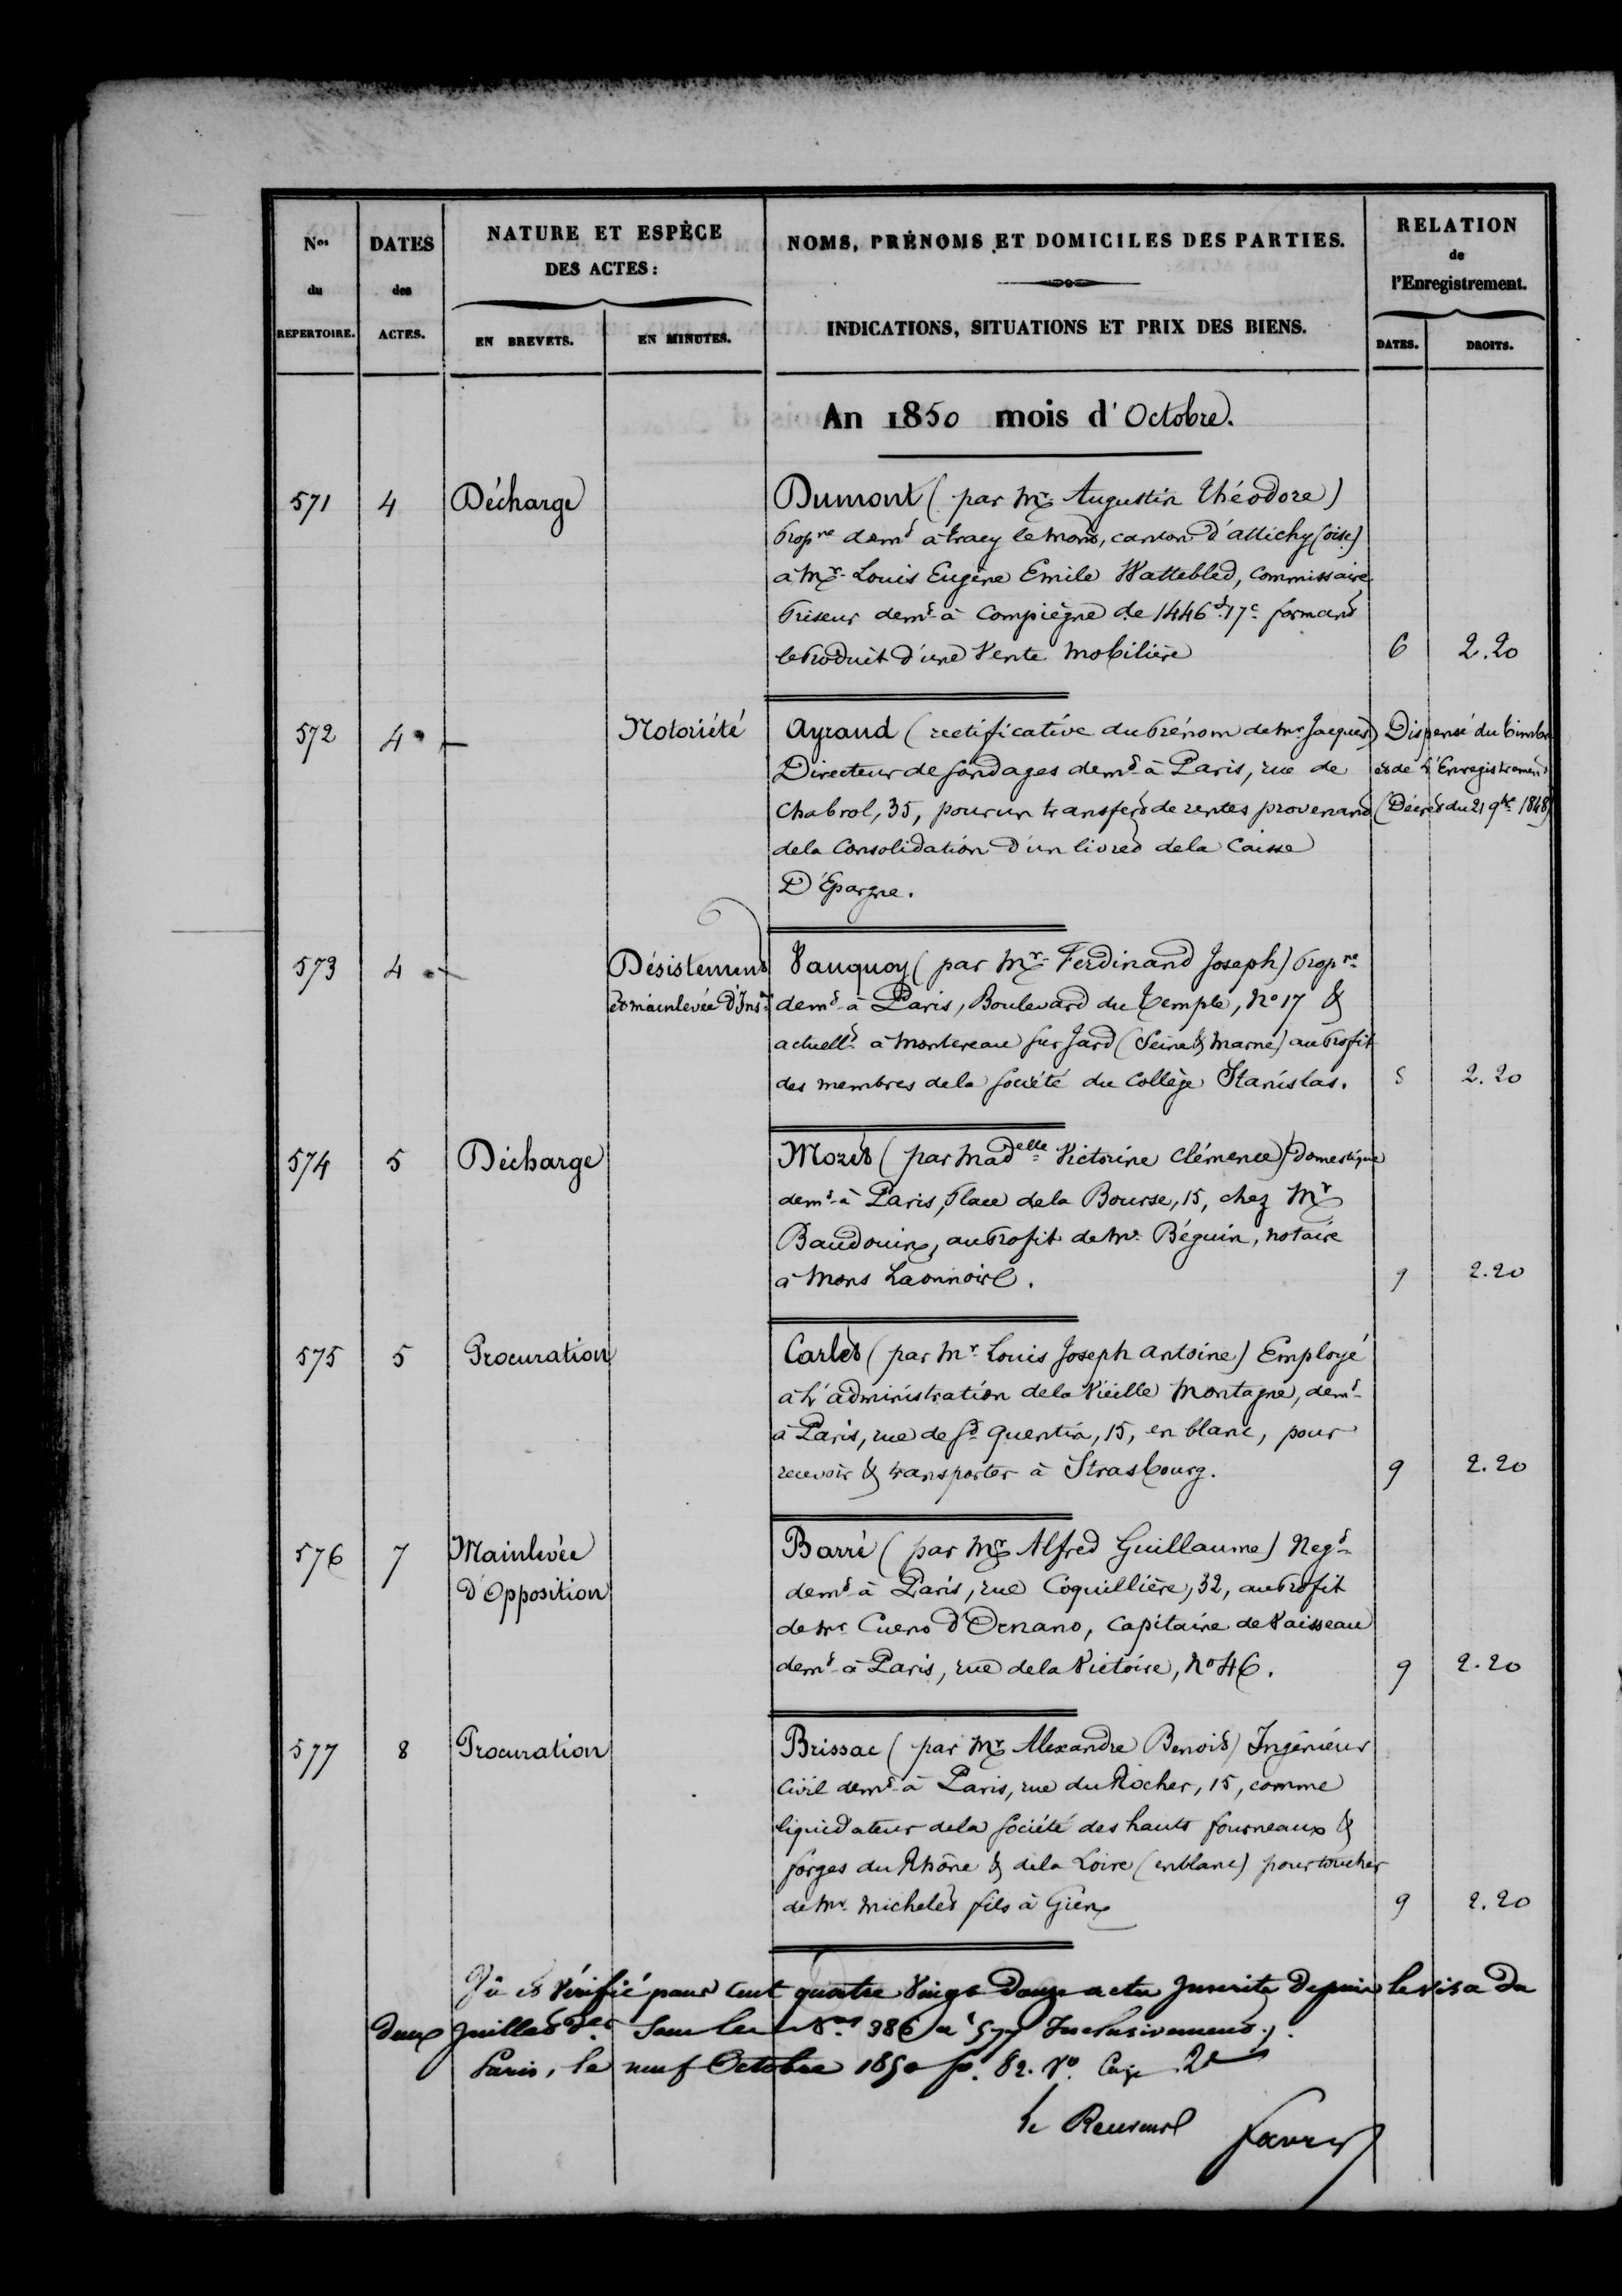 Nos
du
REPERTOIRE.
DATES
des
ACTES.
NATURE ET ESPÈCE
DES ACTES:
EN BREVETS.
EN MINUTES.
NOMS, PRÉNOMS ET DOMICILES DES PARTIES.
INDICATIONS, SITUATIONS ET PRIX DES BIENS.
RELATION
de
l'Enregistrement.
DATES.
DROITS.
An 1850 mois d'Octobre.
571 4 Décharge Dumont (par Mr Augustin Théodore)
Propre demt à tracy le mont, canton d'attichy (oise)
à Mr Louis Eugène Emile Wattebled, Commissaire
Priseur demt à Compiègne de 1446f 17c formant
le Produit d'une Vente Mobilière 6 2.20
572 4 Notoriété Ayraud (rectificative du Prénom de Mr Jacques) Dispensé du timbre
Directeur de sondages demt à Paris, rue de et de l'Enregistrement
Chabrol, 35, pour un transfert de rentes provenant (Décret du 21 9bre 1848)
de la Consolidation d'un livret de la Caisse
D'Epargne.
573 4 Désistement Vauquoy (par Mr Ferdinand Joseph) Propre
et mainlevée d'Inson demt à Paris, Boulevard du Temple, No 17 &
actuellt à Montereau sur Jard (Seine & Marne) au Profit
des membres de la Société du Collège Stanislas. 5 2.20
574 5 Décharge Moret (par Madelle Victorine Clémence) Domestique
demt à Paris, Place de la Bourse, 15, chez Mr
Baudouin, au Profit de Mr Béguin, notaire
à Mons Laonnois. 9 2.20
575 5 Procuration Carlet (par Mr Louis Joseph Antoine) Employé
à l'administration de la Vieille Montagne, demt
à Paris, rue de St Quentin, 15, en blanc, pour
recevoir & transporter à Strasbourg. 9 2.20
576 7 Mainlevée Barré (par Mr Alfred Guillaume) Negt
d'Opposition demt à Paris, rue Coquillière, 32, au Profit
de Mr Cueno d'Ornano, Capitaine de Vaisseau
demt à Paris, rue de la Victoire, No 46. 9 2.20
577 8 Procuration Brissac (par Mr Alexandre Benoit) Ingénieur
Civil demt à Paris, rue du Rocher, 15, comme
liquidateur de la Société des hauts fourneaux &
forges du Rhône & de la Loire (en blanc) pour toucher
de Mr Michelet fils à Gien 9 2.20
Vu et Vérifié pour Cent quatre Vingt Douze actes Inscrits Depuis le visa du
Deux Juillet der Sous les Nos 386 à 577 Inclusivement.
Paris, le neuf Octobre 1850 fo. 82. Vo. Case 2e
Le Receveur